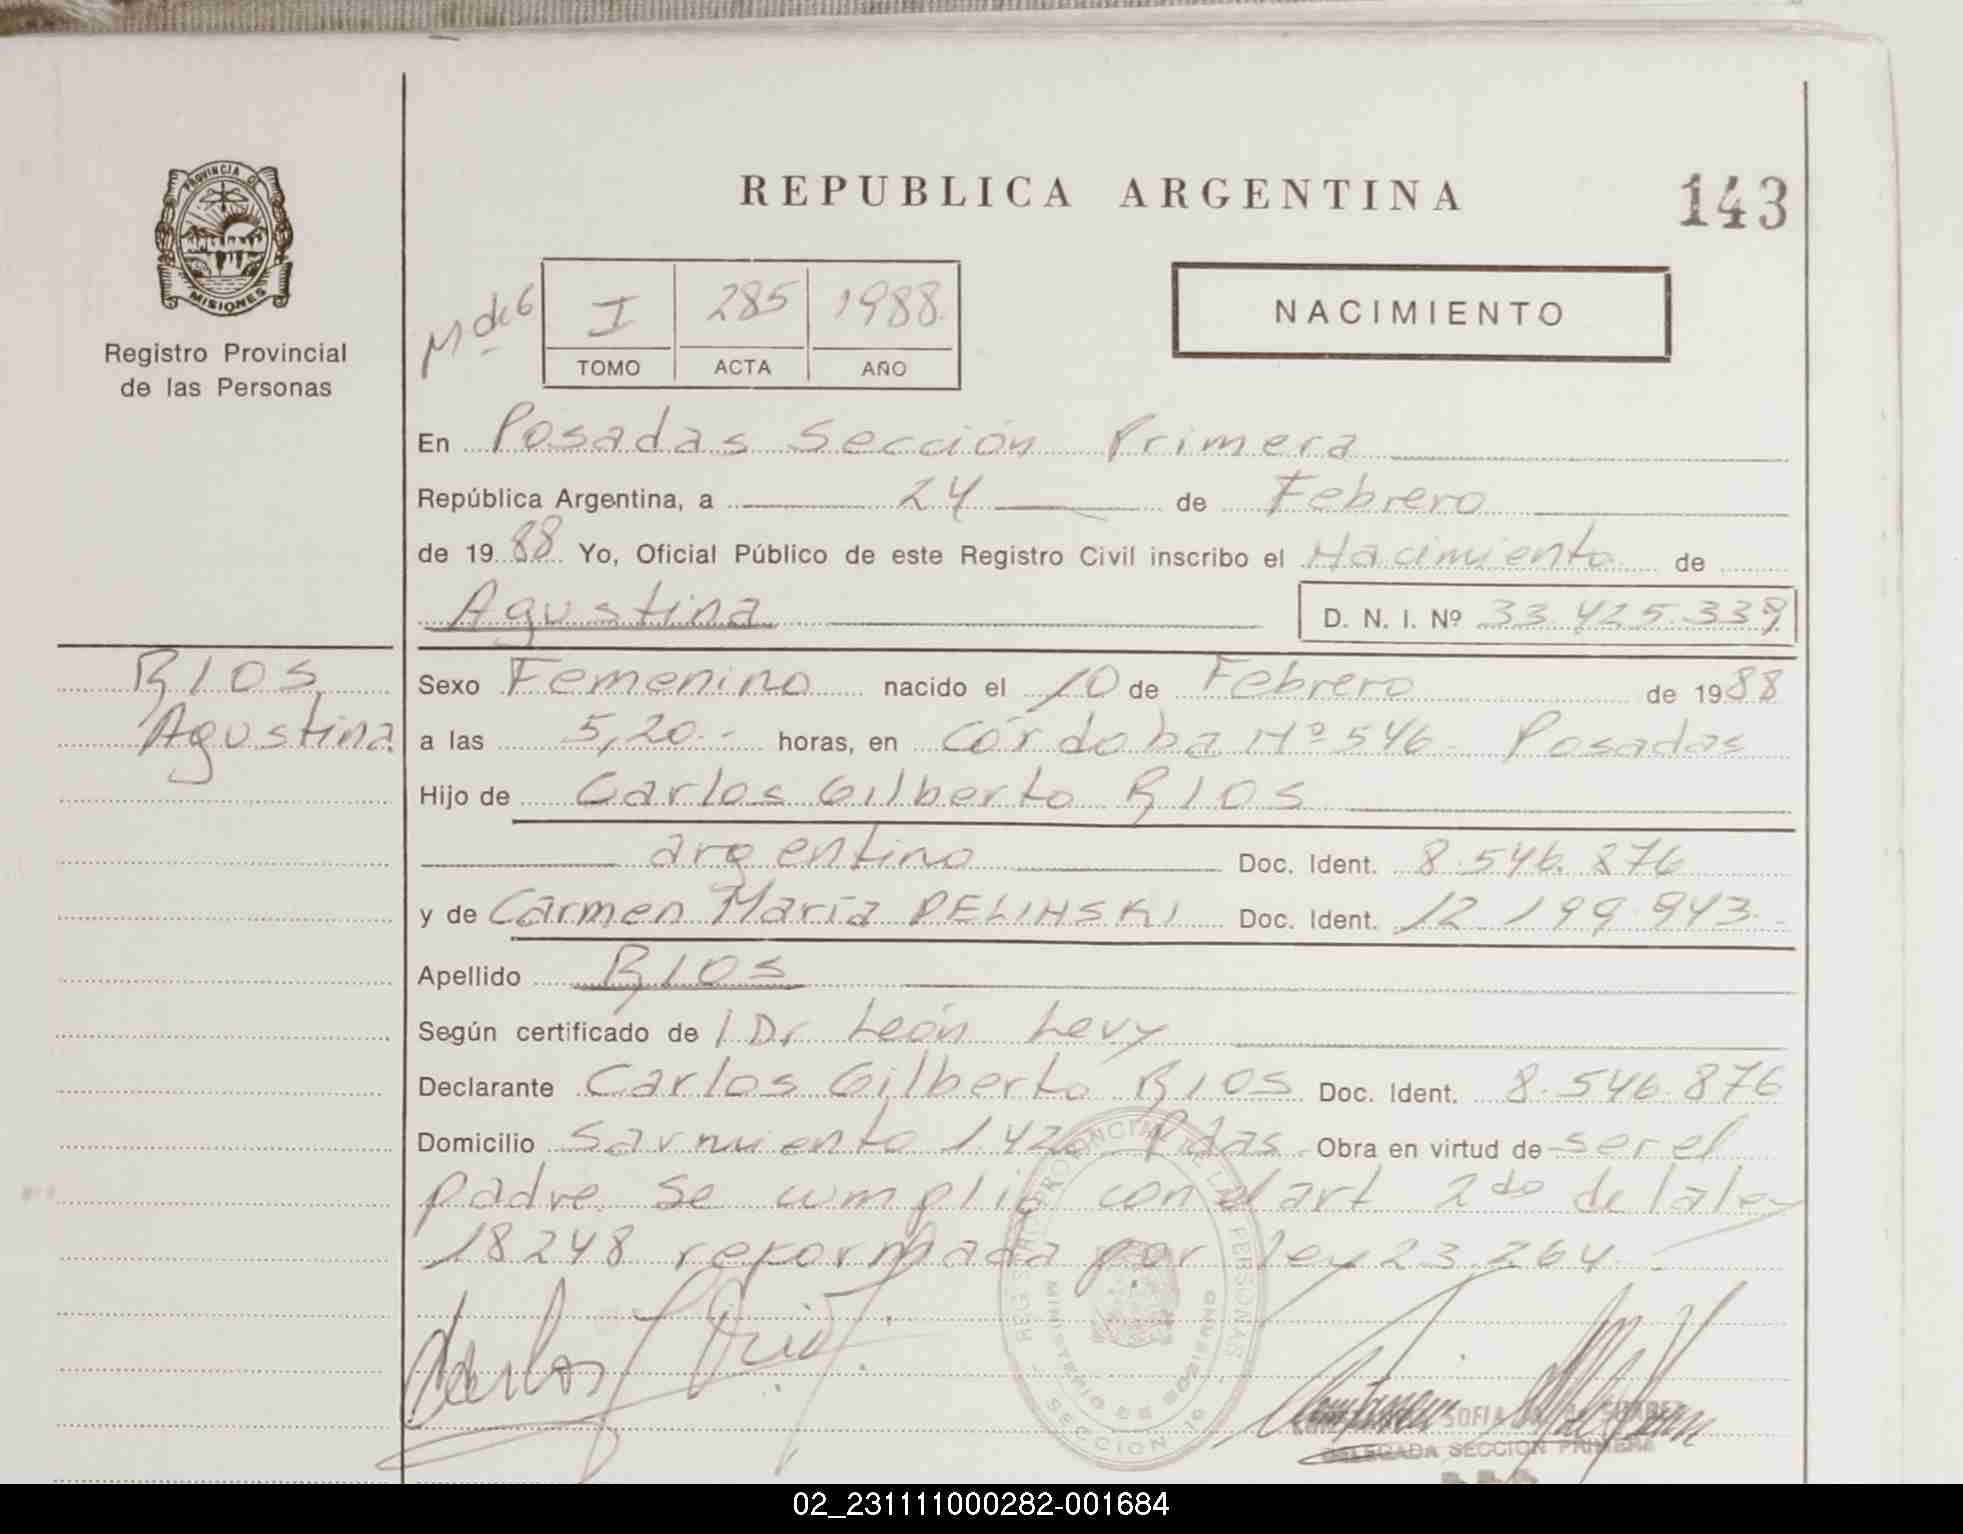 REPUBLICA ARGENTINA
143
PROVINCIA DE
MISIONES
Registro Provincial
de las Personas
M de 6
I 285 1988
TOMO ACTA AÑO
NACIMIENTO
En Posadas Sección Primera
República Argentina, a 24 de Febrero
de 1988 Yo, Oficial Público de este Registro Civil inscribo el Nacimiento de
Agustina D. N. I. Nº 33.425.339
RIOS
Agustina
Sexo Femenino nacido el 10 de Febrero de 1988
a las 5,20.- horas, en Córdoba Nº 546 - Posadas
Hijo de Carlos Gilberto RIOS
argentino Doc. Ident. 8.546.876
y de Carmen María PELINSKI Doc. Ident. 12.199.943.-
Apellido RIOS
Según certificado de l Dr León Levy
Declarante Carlos Gilberto RIOS Doc. Ident. 8.546.876
Domicilio Sarmiento 142 Pdas. Obra en virtud de ser el
padre. Se cumplió con el art 2do de la ley
18248 reformada por ley 23.264.-
REG PROVINCIAL DE LAS PERSONAS
MINISTERIO DE GOBIERNO
SECCION 1a
SOFIA SUAREZ
DELEGADA SECCION PRIMERA
02_231111000282-001684